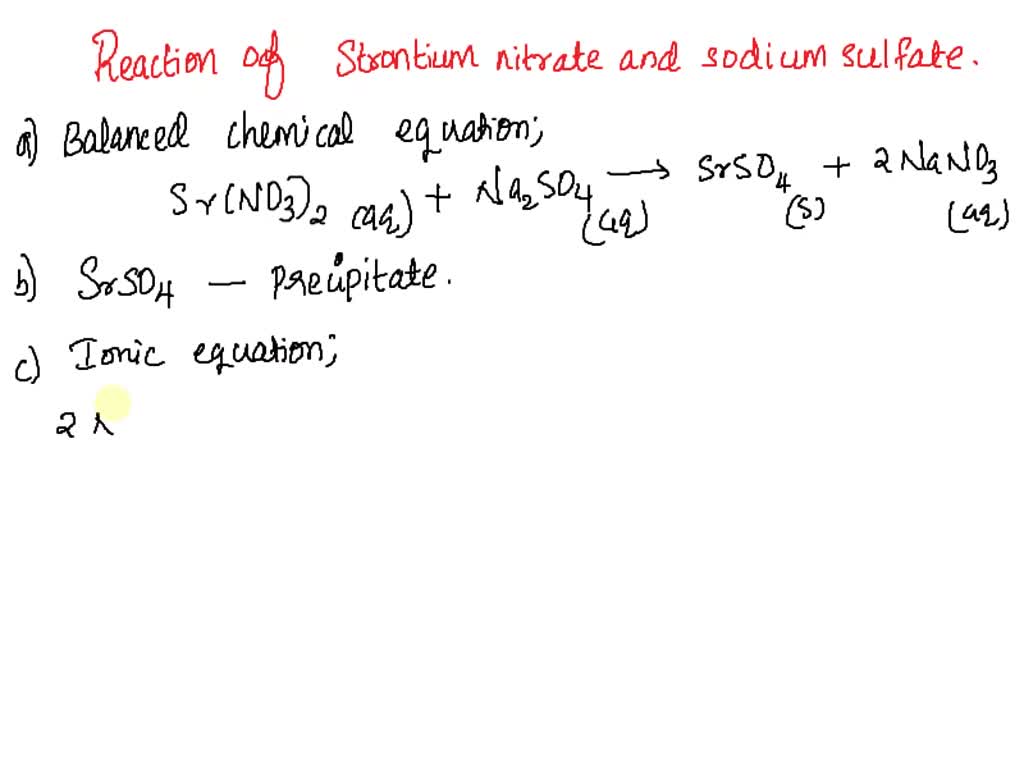 Reaction of Strontium nitrate and sodium sulfate.
a) Balanced chemical equation;
Sr(NO3)2 (aq) + Na2SO4 (aq) → SrSO4 (s) + 2NaNO3 (aq)
b) SrSO4 — Precipitate.
c) Ionic equation;
2